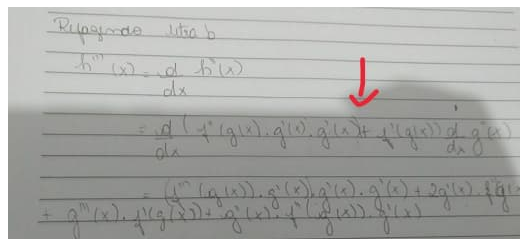 letra b
h'''(x) = d/dx h''(x)
= d/dx (f''(g(x)).g'(x).g'(x)+ f'(g(x)) d/dx g'(x)
= (f'''(g(x)).g'(x).g'(x).g'(x) + 2g'(x).f''(g(x
+ g'''(x).f'(g(x))+ g''(x).f''(g(x)).g'(x)